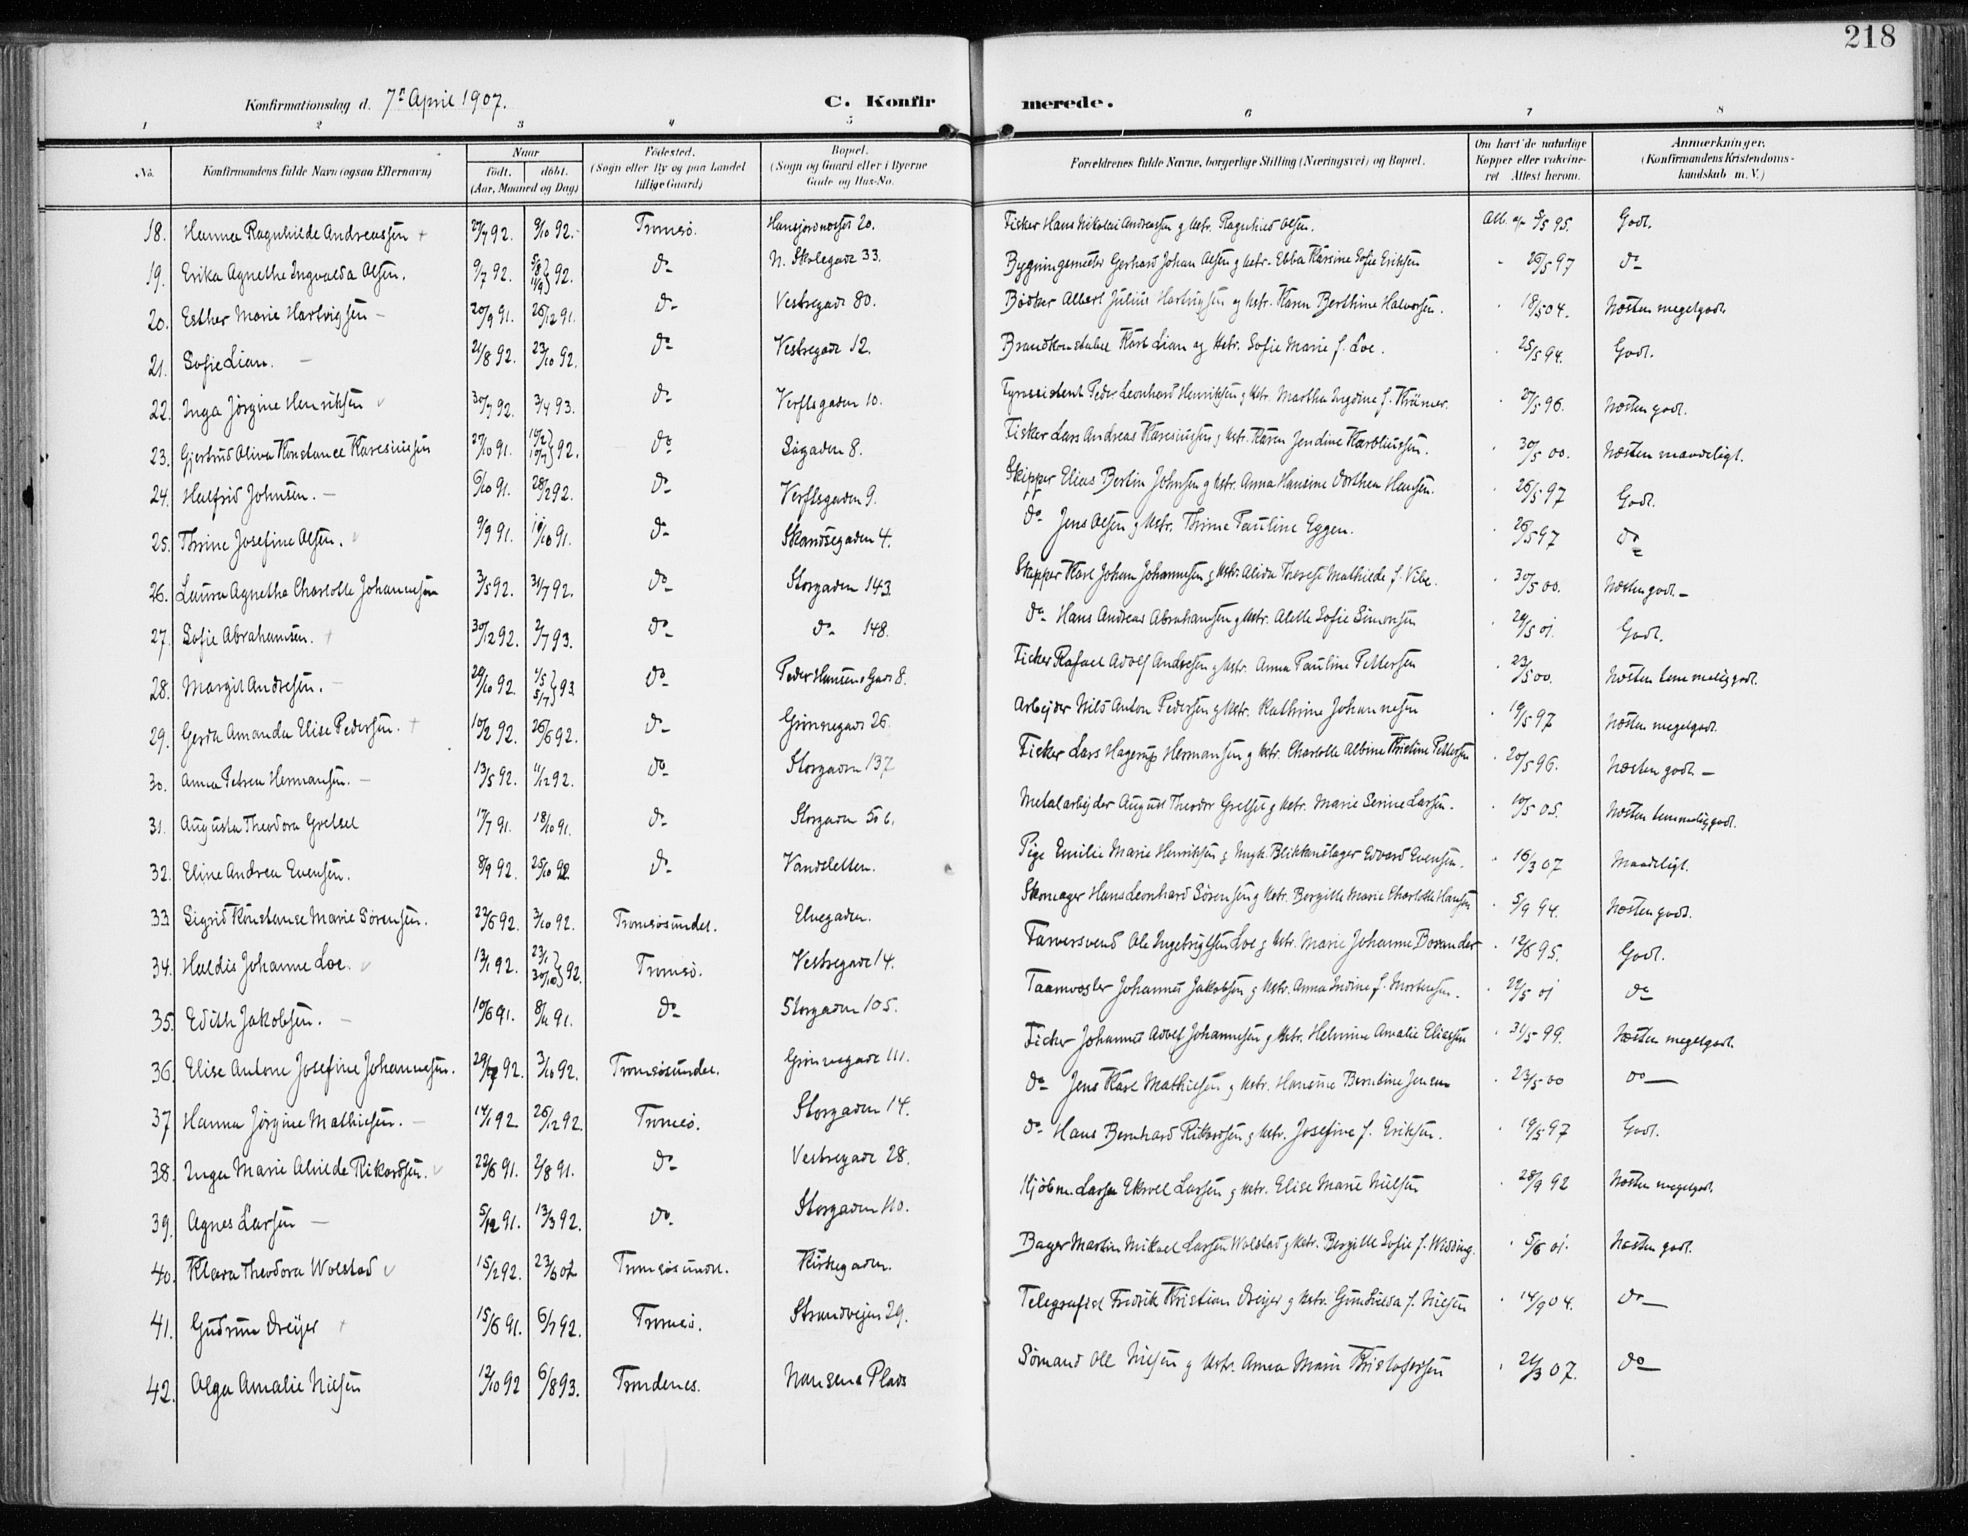 218
Konfirmationsdag d. 7de April 1907.
C. Konfirmerede.
1 2 3 4 5 6 7 8
No.
Konfirmandens fulde Navn (ogsaa Efternavn)
Naar
födt. döbt.
(Aar, Maaned og Dag)
Födested.
(Sogn eller By og paa Landet tillige Gaard)
Bopæl.
(Sogn og Gaard eller i Byerne Gade og Hus-No.
Forældrenes fulde Navne, borgerlige Stilling (Næringsvei) og Bopæl.
Om havt de naturlige Kopper eller vakcineret Attest herom.
Anmærkninger.
(Konfirmandens Kristendomskundskab m. V.)
18. Hanna Ragnhilde Andreassen 27/7 92. 9/10 92. Tromsö. Hansjordnæsgt 20. Fisker Hans Nikolai Andreassen g Hstr. Ragnhild Olsen. Att. af 5/5 95. Godt.
19. Erika Agnethe Ingvalda Olsen. 9/7 92. 5/8 11/9 } 92. do N. Skolegade 33. Bygningsmester Gerhard Johan Olsen g Hstr. Ebba Karsine Sofie Eriksen 26/5 97 do
20. Esther Marie Hartvigsen 20/9 91. 26/12 91. do Vestregade 80. Bödker Albert Julius Hartvigsen og Hstr. Karen Berthine Halvorsen. 18/5 04. Næsten megetgodt.
21. Sofie Lian. 21/8 92. 23/10 92. do Vestregade 12. Brandkonstabel Karl Lian og Hstr. Sofie Marie f. Loe. 25/5 94. Godt.
22. Inga Jörgine Henriksen 30/7 92. 3/4 93. do Verftsgaden 10. Fyrassistent Peder Leonhard Henriksen g Hstr. Martha Ingdine f. Krämer. 27/5 96. Næsten godt.
23. Gjertrud Oliva Konstance Karesiussen 27/10 91. } 92. do Søgaden 8. Fisker Lars Andreas Karesiussen g Hstr. Karen Jendine Karoliussen. 30/5 00. Næsten maadeligt.
24. Halfrid Johnsen. 6/10 91. 28/2 92. do Verftsgaden 9. Skipper Elias Bertin Johnsen g Hstr. Anna Hansine Dorthea Hansen. 26/5 97 Godt.
25. Thrine Josefine Olsen. 9/9 91. 11/10 91. do Skandsegaden 4. do Jens Olsen g Hstr. Thrine Pauline Eggen. 26/5 97 do
26. Laura Agnetha Charlotte Johannesen 3/5 92. 31/7 92. do Storgaden 143. Skipper Karl Johan Johannesen g Hstr. Alida Therese Mathilde f. Vibe. 30/5 00. Næsten godt.
27. Sofie Abrahamsen. 30/12 92. 2/7 93. do do 148. do Hans Andreas Abrahamsen g Hstr. Alette Sofie Simonsen 29/5 01. Godt.
28. Margit Andresen. 29/10 92. 4/5 5/7 } 93 do Peder Hansens Gade 8. Fisker Rafael Adolf Andresen g Hstr. Anna Pauline Pettersen 23/5 00. Næsten temmelig godt.
29. Gerda Amanda Elise Pedersen. 10/2 92. 26/6 92. do Grönnegade 26. Arbejder Nils Anton Pedersen g Hstr. Kathrine Johannesen 19/5 97 Næsten megetgodt.
30. Anna Petrea Hermansen. 13/5 92. 4/12 92. do Storgaden 137 Fisker Lars Hagerup Hermansen g Hstr. Charlotte Albine Kristine Pettersen 20/5 96. Næsten godt
31. Augusta Theodora Gretzel 17/7 91. 18/10 91. do Storgaden 50 b. Metalarbejder August Theodor Gretzel g Hstr. Marie Serine Larsen. 10/5 05. Næsten temmeliggodt.
32. Eline Andrea Evensen. 8/9 92. 25/10 92. do Vandsletten. Pige Emilie Marie Henriksen g Ungk. Blikkenslager Edvard Evensen. 16/3 07 Maadeligt.
33 Sigrid Konstanse Marie Sörensen. 22/6 92. 3/10 92. Tromsösundet. Elvegaden. Skomager Hans Leonhard Sörensen g Hstr. Bergitte Marie Charlotte Hansen 5/9 94. Næsten godt.
34. Haldis Johanne Loe. 13/1 92. 23/1 30/10 } 92. Tromsö. Vestregade 14. Farversvend Ole Ingebrigtsen Loe g Hstr. Marie Johanne Bosander 12/6 95. Godt.
35. Edith Jakobsen. 10/6 91. 8/11 91. do Storgaden 105. Taanvogter Johannes Jakobsen g Hstr. Anna Indine f. Mortensen. 22/5 01 do
36. Elise Antone Josefine Johannesen. 29/7 92. 3/10 92. Tromsösundet. Grönnegade 111. Fisker Johannes Adolf Johannesen g Hstr. Helmine Amalie Eliassen 31/5 99. Næsten megetgodt.
37 Hanna Jörgine Mathiesen. 14/1 92. 26/12 92. Tromsö. Storgaden 14. do Jens Karl Mathiesen g Hstr. Hansine Berntine Jensen 23/5 00 do
38. Inga Marie Alvilde Rikardsen. 22/6 91. 2/8 91. do Vestregade 28. do Hans Bernhard Rikardsen g Hstr. Josefine f. Eriksen. 19/5 97 Godt.
39. Agnes Larsen 5/12 91. 13/3 92. do Storgaden 110. Kjöbm. Larsen Ekroll Larsen g Hstr. Elise Marie Nielsen 28/9 92 Næsten megetgodt.
40. Klara Theodora Wolstad 15/2 92. 23/6 02 Tromsösundet. Kirkegaden. Bager Martin Mikael Larsen Wolstad g Hstr. Bergitte Sofie f. Widding. 5/6 01. Næsten godt.
41. Gudrun Dreyer 15/6 91. 6/7 92. Tromsö. Strandvejen 29. Telegrafist Fredrik Kristian Dreyer g Hstr. Gunhilda f. Nielsen 14/9 04. do
42. Olga Amalie Nilsen 12/10 92 6/8 93. Trondenes. Nansens Plads Sömand Ole Nilsen g Hstr. Anna Marie Kristofersen 21/3 07. do